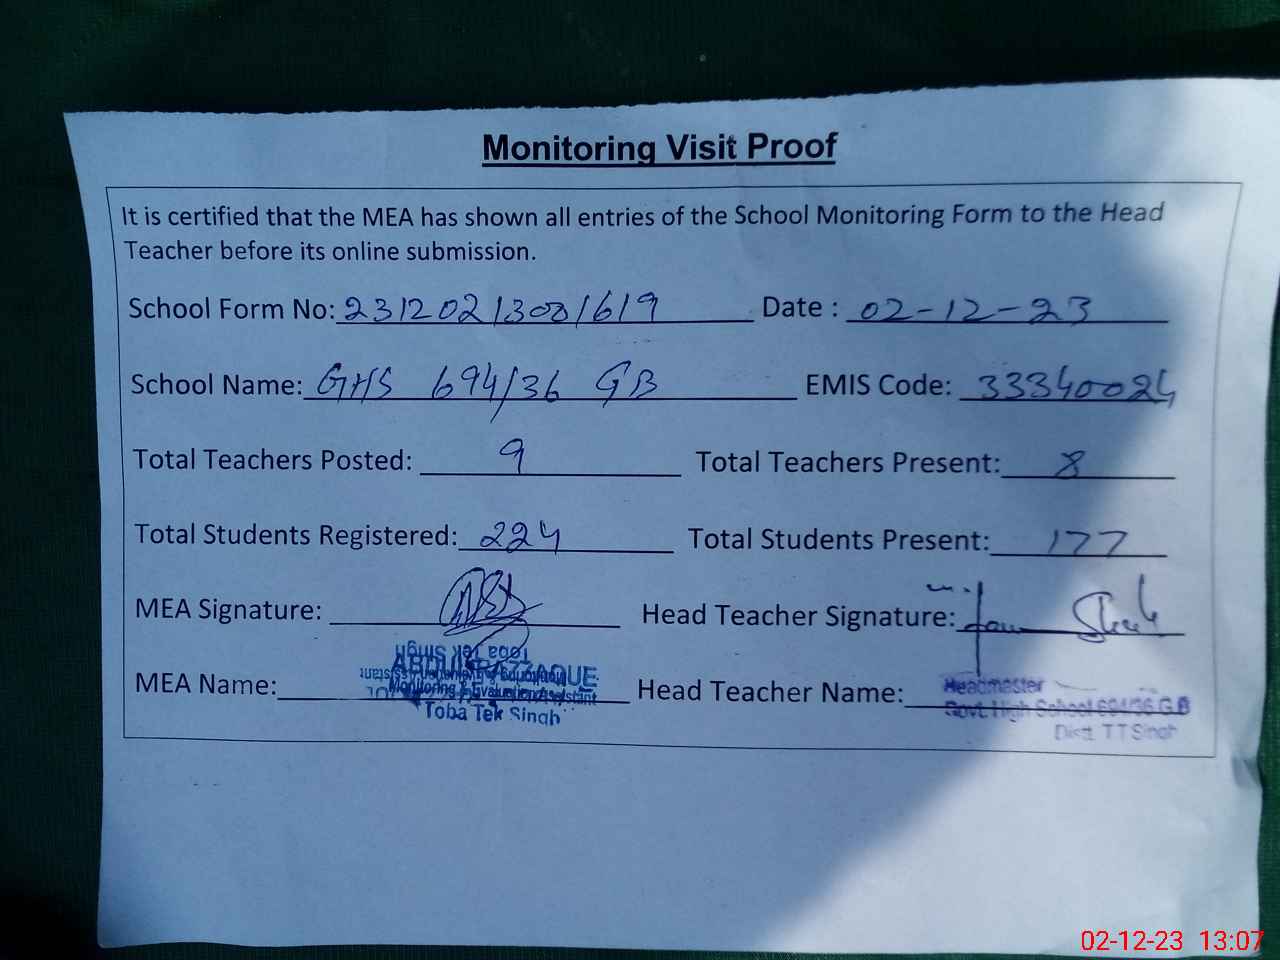 Monitoring Visit Proof
It is certified that the MEA has shown all entries of the School Monitoring Form to the Head
Teacher before its online submission.
School Form No: 23120213001619 Date : 02-12-23
School Name: GHS 694/36 GB EMIS Code: 33340024
Total Teachers Posted: 9 Total Teachers Present: 8
Total Students Registered: 224 Total Students Present: 177
MEA Signature: Head Teacher Signature:
MEA Name: ABDUL RAZZAQUE Head Teacher Name: Headmaster
Monitoring & Evaluation Assistant Govt. High School 694/36 G.B
Toba Tek Singh Distt. T T Singh
02-12-23 13:07